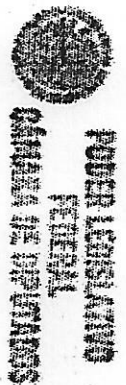 PODER LEGISLATIVO
FEDERAL
CAMARA DE DIPUTADOS